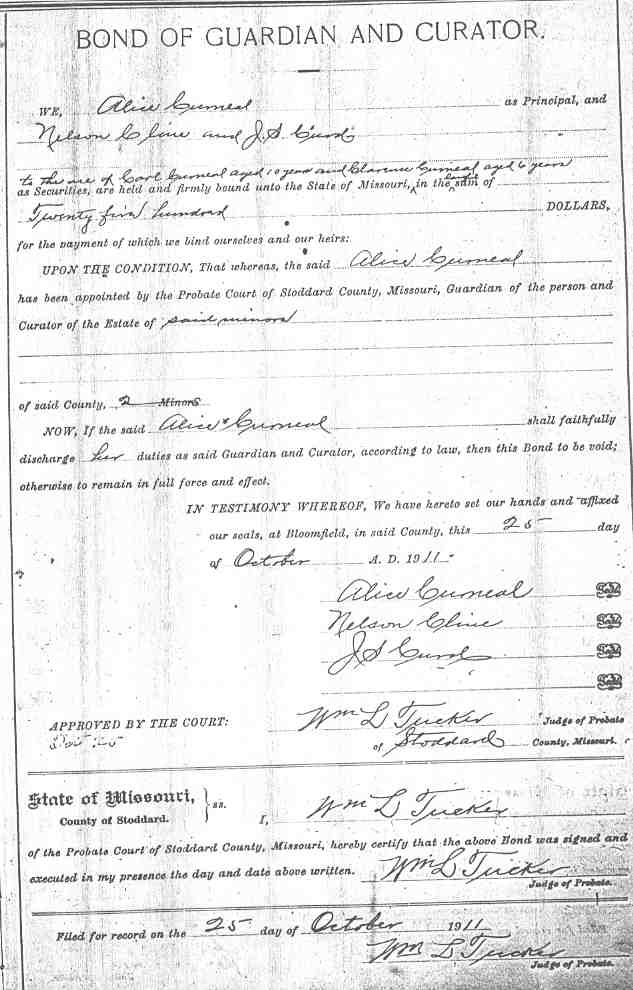 BOND OF GUARDIAN AND CURATOR.
WE, Alice Curneal as Principal, and
Nelson Cline and J. S.
to the use of Carl Curneal aged 10 years and Clarence Curneal aged 6 years
as Securities, are held and firmly bound unto the State of Missouri, in the sum of
Twenty five hundred DOLLARS,
for the payment of which we bind ourselves and our heirs:
UPON THE CONDITION, That whereas, the said Alice Curneal
has been appointed by the Probate Court of Stoddard County, Missouri, Guardian of the person and
Curator of the Estate of said minors
of said County, 2 Minors
NOW, If the said Alice Curneal shall faithfully
discharge her duties as said Guardian and Curator, according to law, then this Bond to be void;
otherwise to remain in full force and effect.
IN TESTIMONY WHEREOF, We have hereto set our hands and affixed
our seals, at Bloomfield, in said County, this 25 day
of October A. D. 1911
Alice Curneal Seal
Nelson Cline Seal
J S Seal
Seal
APPROVED BY THE COURT: Wm L Tucker Judge of Probate
of Stoddard County, Missouri.
State of Missouri, } ss.
County of Stoddard. I, Wm L Tucker
of the Probate Court of Stoddard County, Missouri, hereby certify that the above Bond was signed and
executed in my presence the day and date above written. Wm L Tucker
Judge of Probate.
Filed for record on the 25 day of October 1911
Wm L Tucker
Judge of Probate.